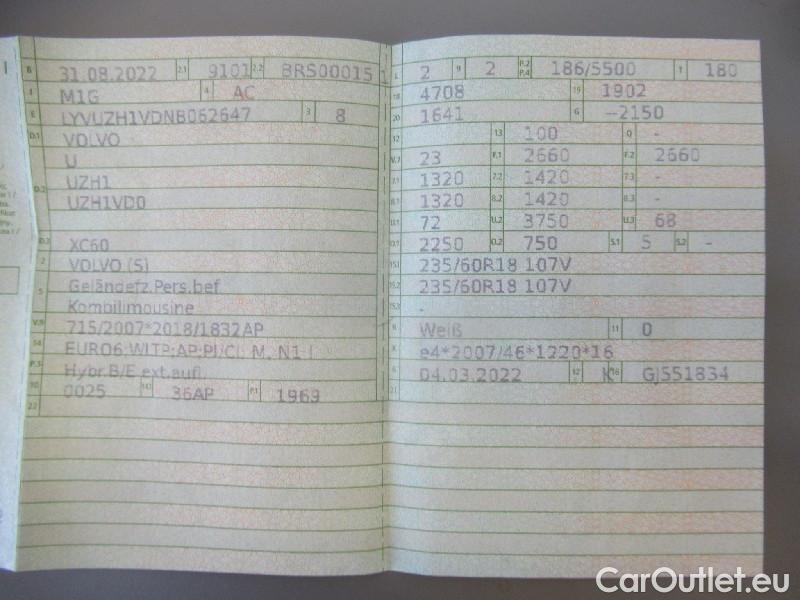 B 31.08.2022 2.1 9101 2.2 BRS00015 1
J M1G 4 AC
E LYVUZH1VDNB062647 3 8
D.1 VOLVO
U
D.2 UZH1
UZH1VD0
D.3 XC60
2 VOLVO (S)
5 Geländefz.Pers.bef
Kombilimousine
V.9 715/2007*2018/1832AP
14 EURO6;WLTP;AP;PI/CI; M, N1 I
P.3 Hybr.B/E ext.aufl.
10 0025 14.1 36AP P.1 1969
22
L 2 9 2 P.2 P.4 186/5500 T 180
18 4708 19 1902
20 1641 G —2150
12 13 100 Q -
V.7 23 F.1 2660 F.2 2660
7.1 1320 7.2 1420 7.3 -
8.1 1320 8.2 1420 8.3 -
U.1 72 U.2 3750 U.3 68
O.1 2250 O.2 750 S.1 5 S.2 -
15.1 235/60R18 107V
15.2 235/60R18 107V
15.3 -
R Weiß 11 0
K e4*2007/46*1220*16
6 04.03.2022 17 K 16 GJ551834
21
CarOutlet.eu